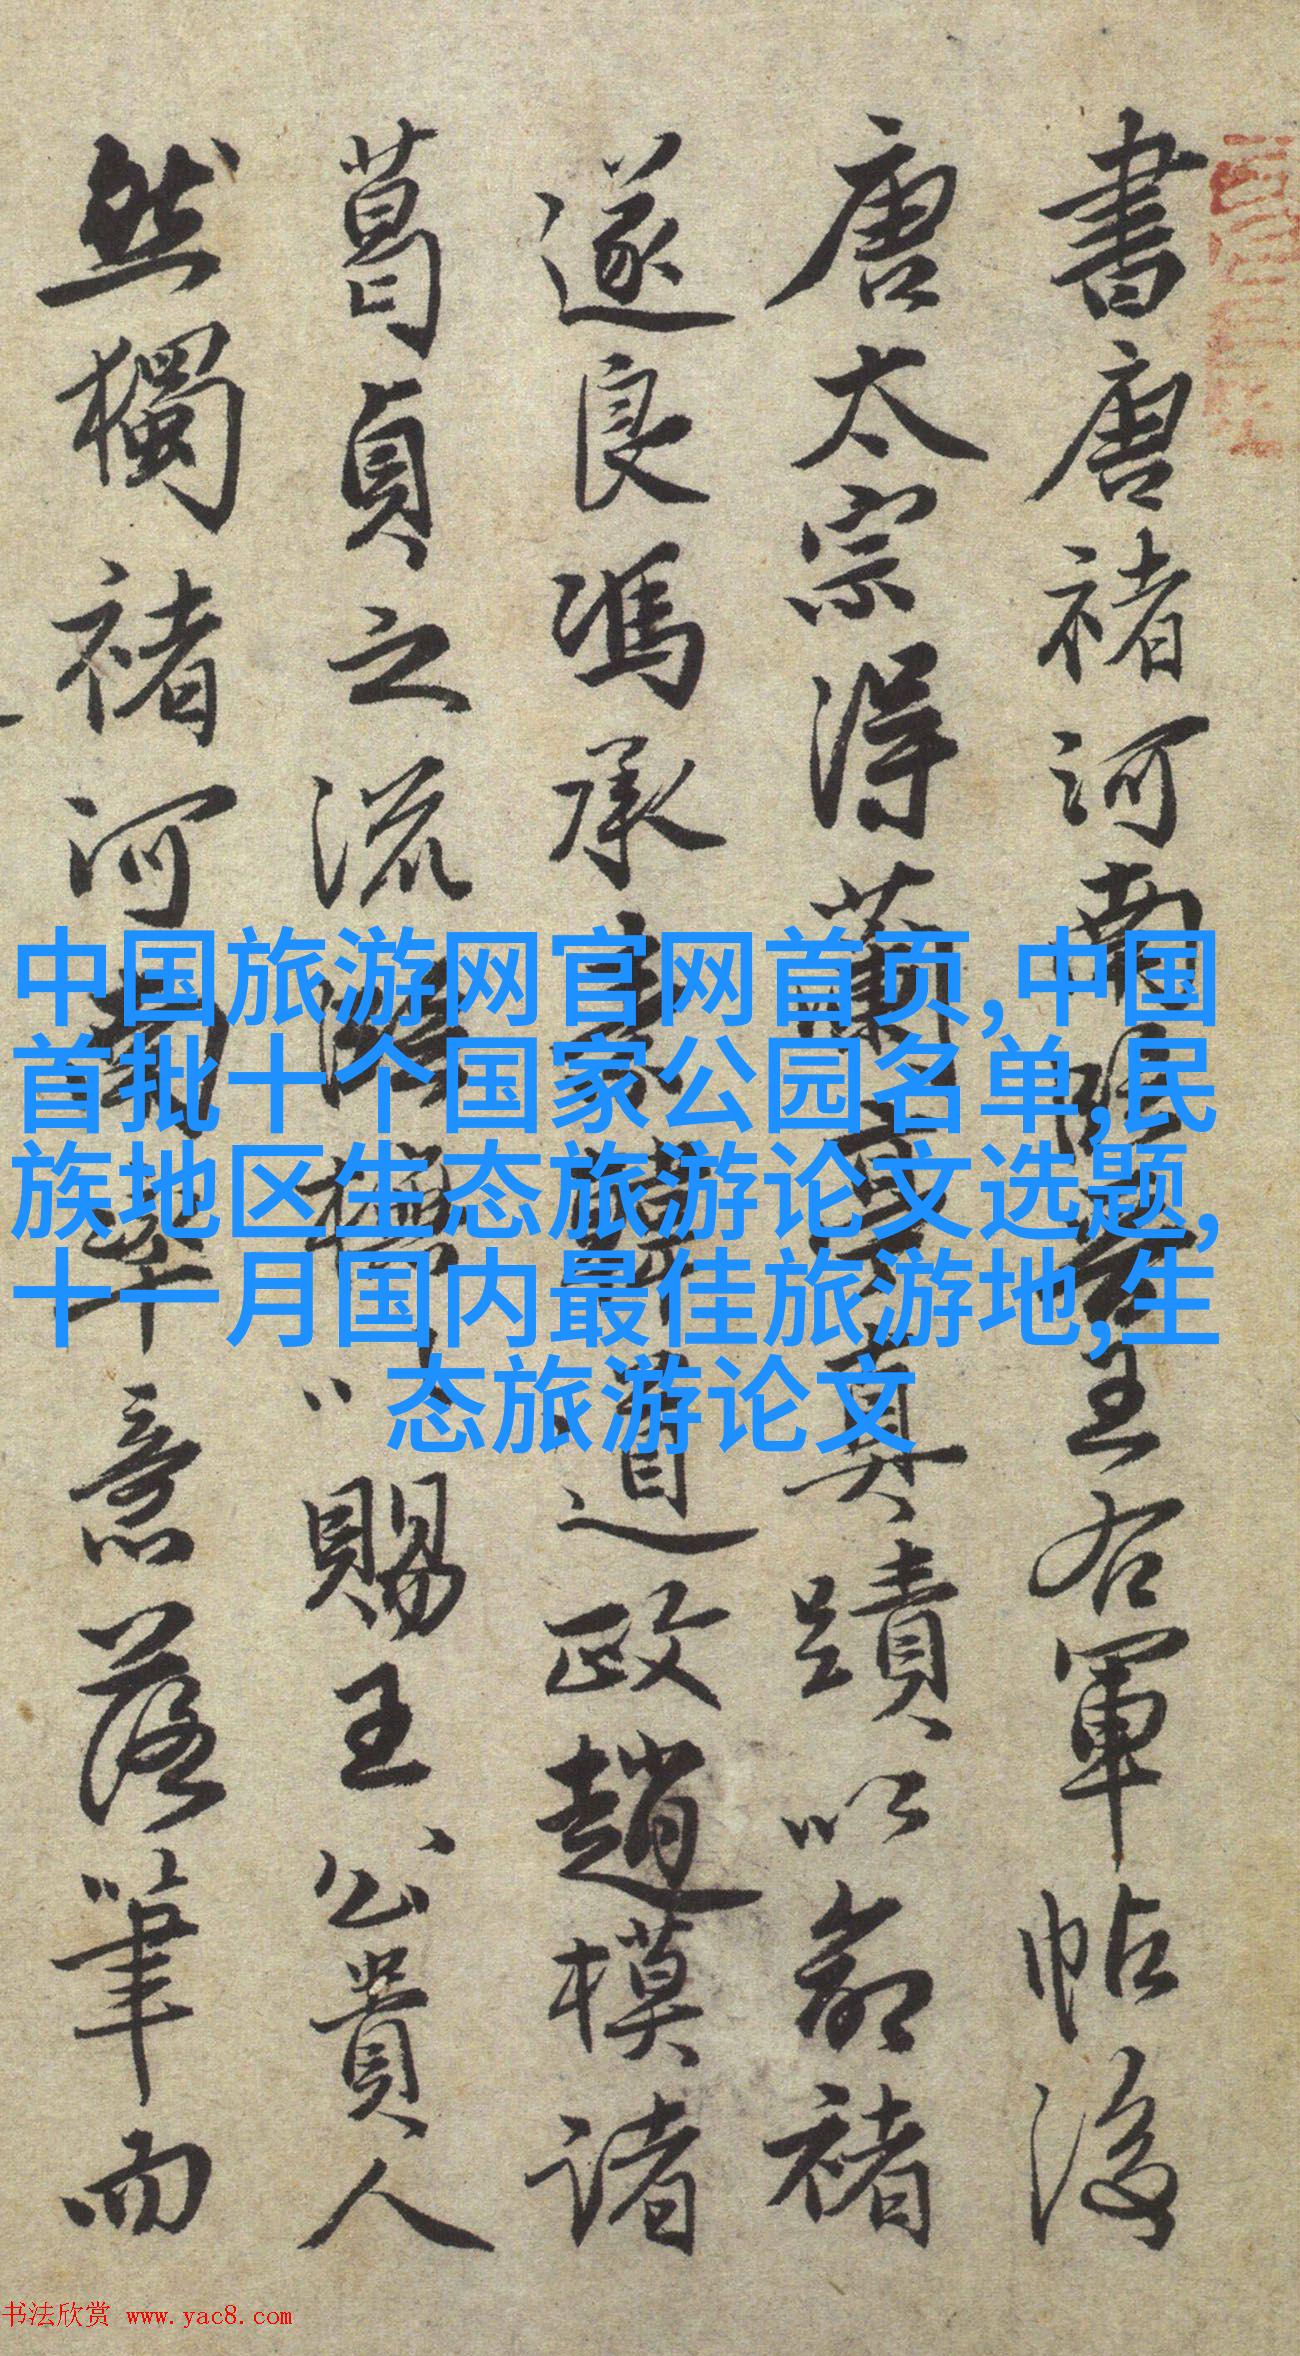 書唐褚河南臨晉王右軍帖後
唐太宗得蘭亭真蹟以命褚
遂良馮承素韓道政趙模諸
葛貞之流以賜王公貴人
然獨褚河南率意落筆而
中国旅游网官网首页,中国
首批十个国家公园名单,民
族地区生态旅游论文选题,
十一月国内最佳旅游地,生
态旅游论文
书法欣赏 www.yac8.com